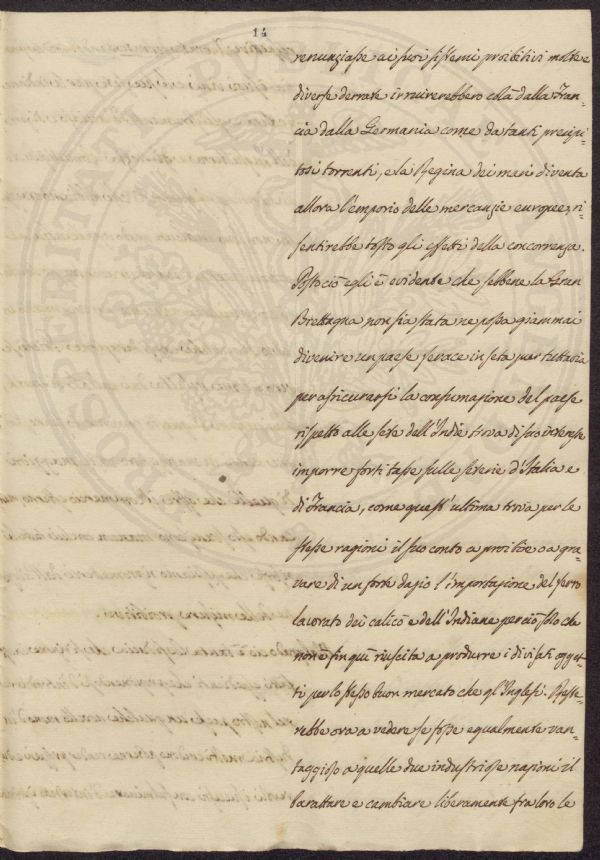 14
renunziasse ai suoi sistemi proibitivi molte e
diverse derrate irruirebbero colà dalla Fran=
cia dalla Germania come da tanti precipi=
tosi torrenti, e la Regina dei mari diventa
allora l'emporio delle mercanzie europee, ri=
sentirebbe tosto gli effetti della concorrenza.
Posto ciò egli è evidente che sebbene la Gran
Brettagna non sia stata ne possa giammai
divenire un paese ferace in seta pur tuttavia
per assicurarsi la consumazione del paese
rispetto alle sete dell'Indie trova di suo interesse
imporre forti tasse sulle seterie d'Italia e
di Francia, come quest'ultima trova per le
stesse ragioni il suo conto a proibire o a gra=
vare di un forte dazio l'importazione del ferro
lavorato dei calicò e dell'Indiane perciò solo che
non è fin qui riuscita a produrre i divisati ogget=
ti per lo stesso buon mercato che gl'Inglesi. Reste=
rebbe ora a vedere se fosse egualmente van=
taggioso a quelle due industriose nazioni il
barattare e cambiare liberamente fra loro le